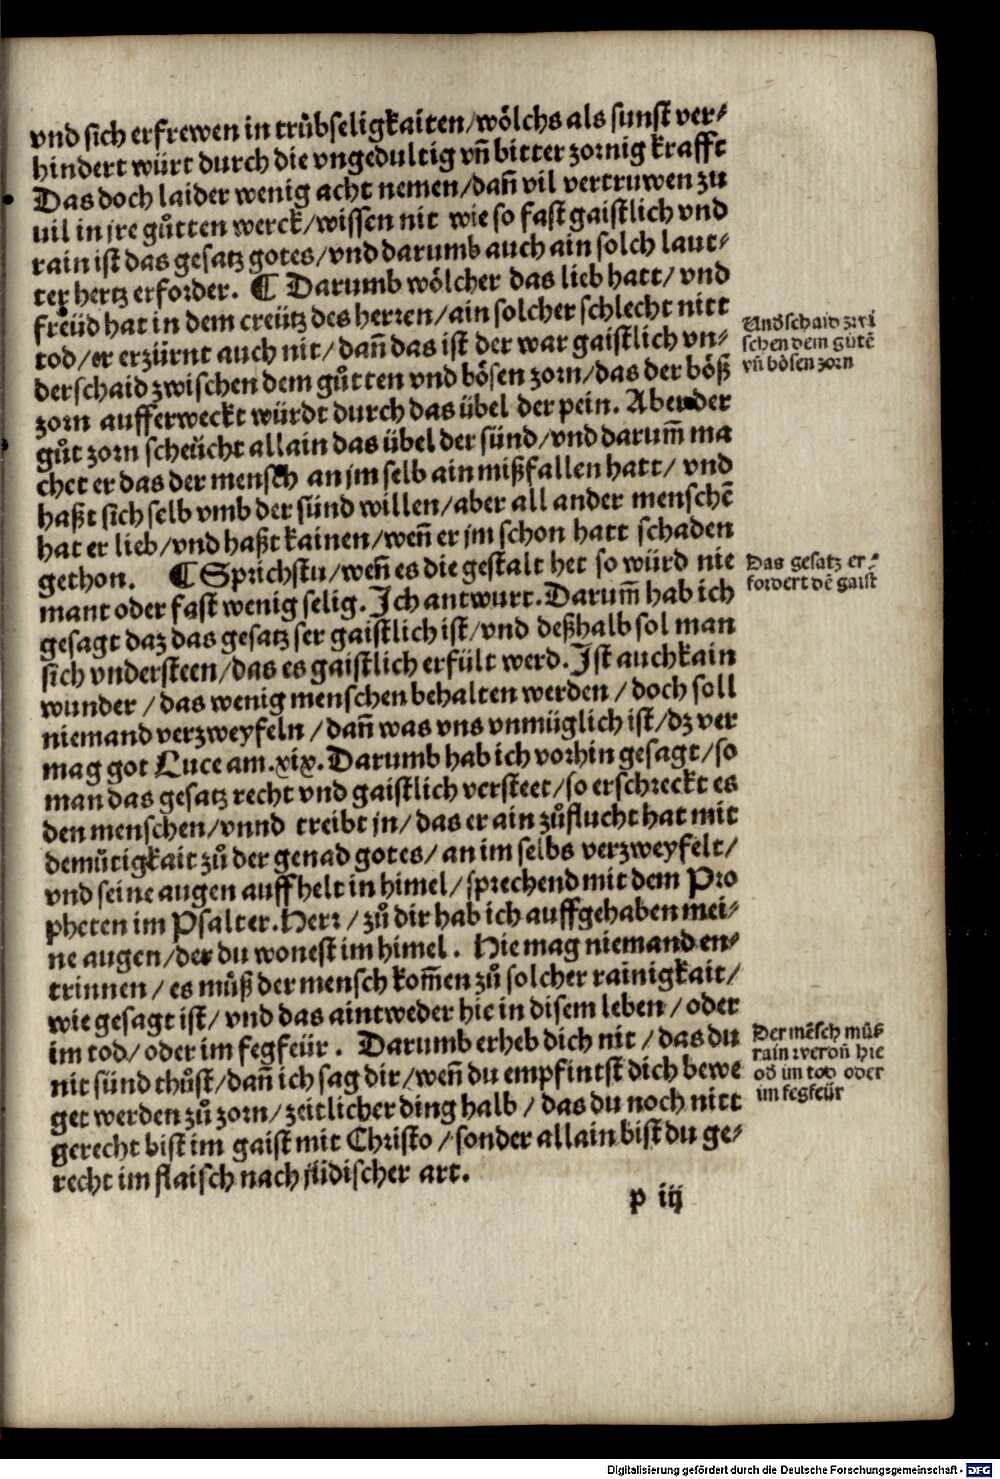 vnd sich erfrewen in trůbseligkaiten/wölchs als sunst ver⸗
hindert würt durch die vngedultig vñ bitter zornig krafft
Das doch laider wenig acht nemen/dañ vil vertruwen zu
uil in jre gůtten werck/wissen nit wie so fast gaistlich vnd
rain ist das gesatz gotes/vnd darumb auch ain solch laut⸗
ter hertz erforder. ¶ Darumb wölcher das lieb hatt/ vnd
freüd hat in dem creütz des herren/ain solcher schlecht nitt
tod/er erzürnt auch nit/dañ das ist der war gaistlich vn⸗
derschaid zwischen dem gůtten vnd bösen zorn/das der böß
zorn aufferweckt würdt durch das übel der pein. Aber der
gůt zorn scheücht allain das übel der sünd/vnd darum̃ ma
chet er das der mensch an jm selb ain mißfallen hatt/ vnd
haßt sich selb vmb der sünd willen/aber all ander menschẽ
hat er lieb/vnd haßt kainen/weñ er jm schon hatt schaden
gethon. ¶ Sprichstu/weñ es die gestalt het so würd nie
mant oder fast wenig selig. Ich antwurt. Darum̃ hab ich
gesagt daz das gesatz ser gaistlich ist/vnd deßhalb sol man
sich vndersteen/das es gaistlich erfült werd. Ist auch kain
wunder /das wenig menschen behalten werden / doch soll
niemand verzweyfeln /dañ was vns vnmüglich ist/dz ver
mag got Luce am .xix. Darumb hab ich vorhin gesagt/so
man das gesatz recht vnd gaistlich versteet/so erschreckt es
den menschen/vnnd treibt jn/das er ain zůflucht hat mit
demůtigkait zů der genad gotes/ an im selbs verzweyfelt/
vnd seine augen auff helt in himel/sprechend mit dem Pro
pheten im Psalter. Herr/ zů dir hab ich auffgehaben mei⸗
ne augen/der du wonest im himel. Hie mag niemand en⸗
trinnen / es můß der mensch kom̃en zů solcher rainigkait/
wie gesagt ist/ vnd das aintweder hie in disem leben / oder
im tod/oder im fegfeür. Darumb erheb dich nit / das du
nit sünd thůst/dañ ich sag dir/weñ du empfintst dich bewe
get werden zů zorn/zeitlicher ding halb / das du noch nitt
gerecht bist im gaist mit Christo /sonder allain bist du ge⸗
recht im flaisch nach jüdischer art.
p iij
Vndschaid zwi
schen dem gůtẽ
vñ bösen zorn
Das gesatz er⸗
fordert dẽ gaist
Der mẽsch můß
rain werdñ hie
od im tod oder
im fegfeür
Digitalisierung gefördert durch die Deutsche Forschungsgemeinschaft - DFG